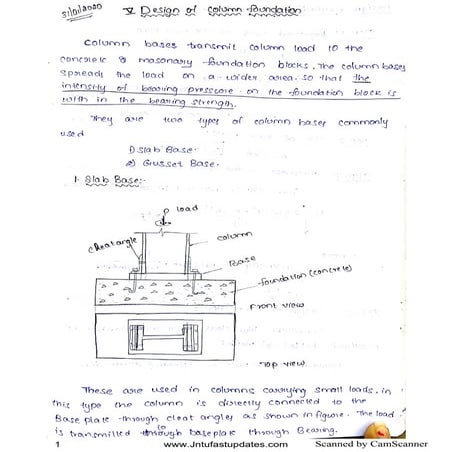 31/01/2020
V Design of Column foundation
Column bases transmit column load to the
concrete & masonary foundation blocks. The column bases
spreads the load on a wider area. so that the
intensity of bearing pressure on the foundation block is
with in the bearing strength.
They are two types of column bases commonly
used
1) Slab Base.
2) Gusset Base.
1. Slab Base:-
P load
Cleat angle
column
Base
foundation (concrete)
Front view
Top view
These are used in columns carrying small loads. in
this type the column is directly connected to the
Base plate through cleat angles as shown in figure. The load
is transmitted to baseplate through Bearing.
1
www.Jntufastupdates.com
Scanned by CamScanner